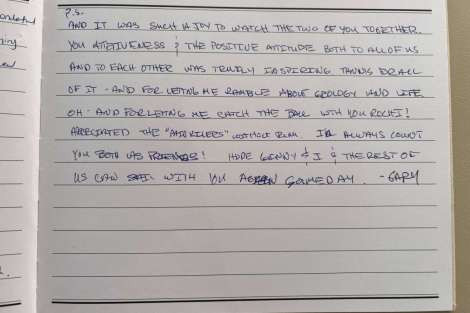 P.S.
AND IT WAS SUCH A JOY TO WATCH THE TWO OF YOU TOGETHER.
YOU & THE POSITIVE ATTITUDE BOTH TO ALL OF US
AND TO EACH OTHER WAS TRULY INSPIRING THANKS FOR ALL
OF IT - AND FOR LETTING ME RAMBLE ABOUT GEOLOGY AND LIFE
OH - AND FOR LETTING ME CATCH THE BALL WITH YOU
APPRECIATED THE I'LL ALWAYS COUNT
YOU BOTH AS FRIENDS! HOPE & I & THE REST OF
US CAN SAIL WITH YOU AGAIN SOMEDAY. -GARY